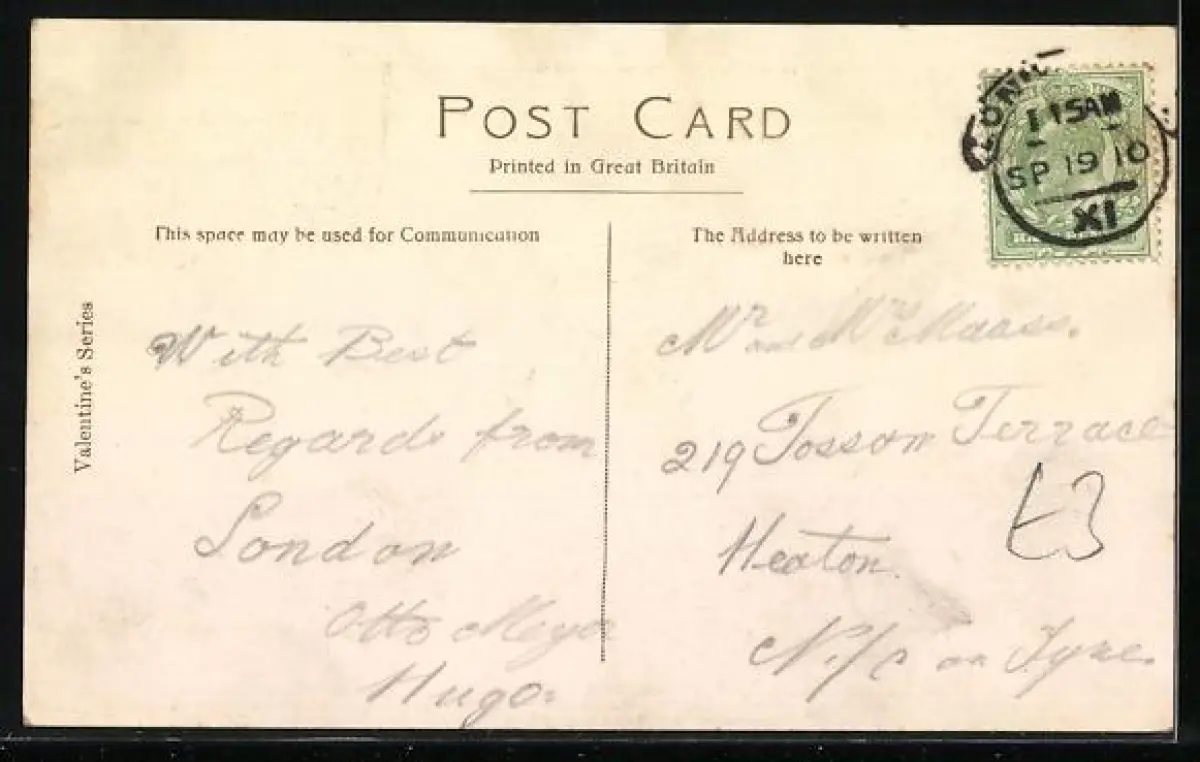 POST CARD
Printed in Great Britain
This space may be used for Communication
The Address to be written
here
Valentine's Series
11 15AM
SP 19 10
XI
With Best
Regards from
London
Otto
Hugo.
Mr and Mrs Maass.
219 Tosson Terrace
Heaton.
N./C on Tyne.
£3